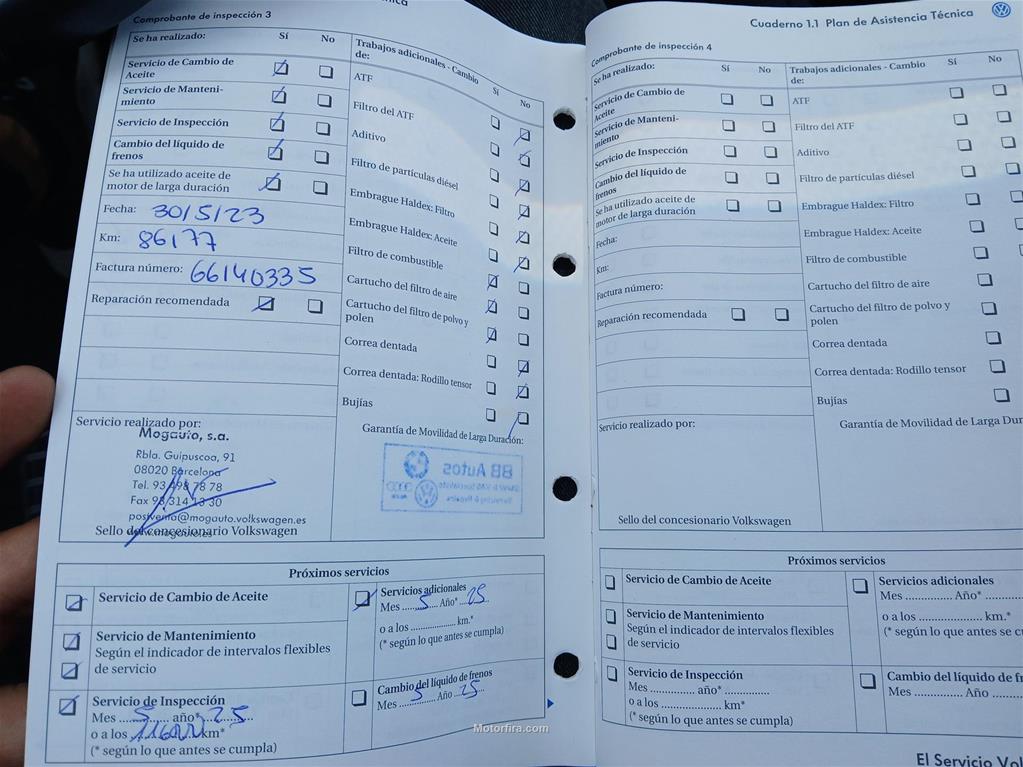 Comprobante de inspección 3
Se ha realizado: Sí No
Servicio de Cambio de
Aceite
Servicio de Manteni-
miento
Servicio de Inspección
Cambio del líquido de
frenos
Se ha utilizado aceite de
motor de larga duración
Fecha: 30/5/23
Km: 86177
Factura número: 66140335
Reparación recomendada
Servicio realizado por:
Mogauto, s.a.
Rbla. Guipuscoa, 91
08020 Barcelona
Tel. 93 498 78 78
Fax 93 314 13 30
postventa@mogauto.volkswagen.es
Sello del concesionario Volkswagen
Trabajos adicionales - Cambio
de:
Sí No
ATF
Filtro del ATF
Aditivo
Filtro de partículas diésel
Embrague Haldex: Filtro
Embrague Haldex: Aceite
Filtro de combustible
Cartucho del filtro de aire
Cartucho del filtro de polvo y
polen
Correa dentada
Correa dentada: Rodillo tensor
Bujías
Garantía de Movilidad de Larga Duración:
BB Autos
Próximos servicios
Servicio de Cambio de Aceite
Servicio de Mantenimiento
Según el indicador de intervalos flexibles
de servicio
Servicio de Inspección
Mes 5 año* 25
o a los km*
(* según lo que antes se cumpla)
Servicios adicionales
Mes 5 Año* 25
o a los km.*
(* según lo que antes se cumpla)
Cambio del líquido de frenos
Mes 5 Año 25
Cuaderno 1.1 Plan de Asistencia Técnica
Comprobante de inspección 4
Se ha realizado: Sí No
Servicio de Cambio de
Aceite
Servicio de Manteni-
miento
Servicio de Inspección
Cambio del líquido de
frenos
Se ha utilizado aceite de
motor de larga duración
Fecha:
Km:
Factura número:
Reparación recomendada
Servicio realizado por:
Sello del concesionario Volkswagen
Trabajos adicionales - Cambio
de:
Sí No
ATF
Filtro del ATF
Aditivo
Filtro de partículas diésel
Embrague Haldex: Filtro
Embrague Haldex: Aceite
Filtro de combustible
Cartucho del filtro de aire
Cartucho del filtro de polvo y
polen
Correa dentada
Correa dentada: Rodillo tensor
Bujías
Garantía de Movilidad de Larga Dur
Próximos servicios
Servicio de Cambio de Aceite
Servicio de Mantenimiento
Según el indicador de intervalos flexibles
de servicio
Servicio de Inspección
Mes ............... año* ...............
o a los .................... km*
(* según lo que antes se cumpla)
Servicios adicionales
Mes ............... Año*
o a los .................... km.*
(* según lo que antes se cumpla)
Cambio del líquido de fr
Mes ............... Año
El Servicio Vol
Motorfira.com